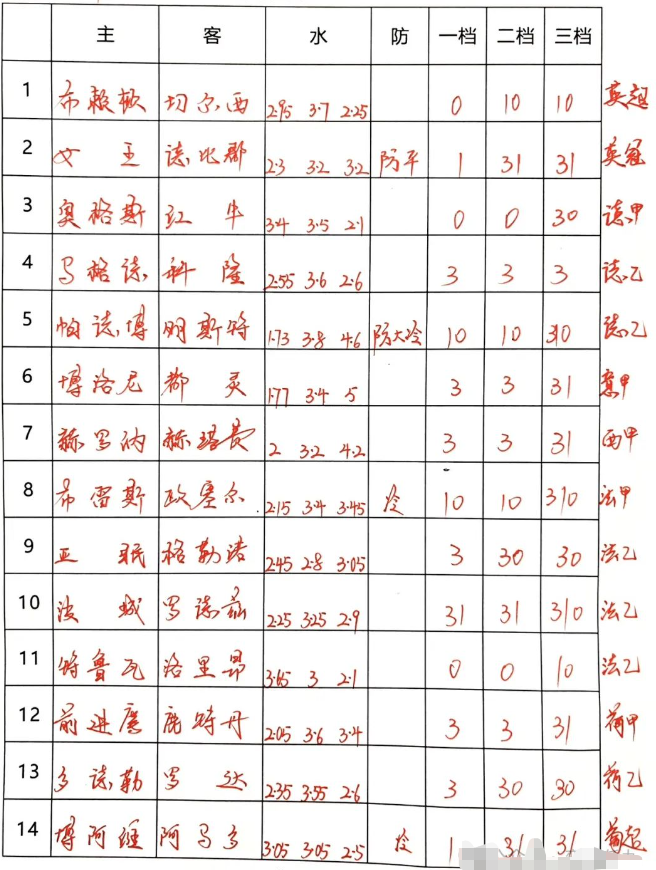 主 客 水 防 一档 二档 三档
1 布赖顿 切尔西 2.95 3.7 2.25 0 10 10 英超
2 女王 诺比郡 2.3 3.2 3.2 防平 1 31 31 英冠
3 奥格斯 红牛 3.4 3.5 2.1 0 0 30 德甲
4 马格德 科隆 2.55 3.6 2.6 3 3 3 德乙
5 帕德博 明斯特 1.73 3.8 4.6 防大冷 10 10 310 德乙
6 博洛尼 都灵 1.77 3.4 5 3 3 31 意甲
7 赫罗纳 赫塔费 2 3.2 4.2 3 3 31 西甲
8 布雷斯 欧塞尔 2.15 3.4 3.45 冷 10 10 310 法甲
9 亚眠 格勒诺 2.45 2.8 3.05 3 30 30 法乙
10 波城 罗德兹 2.25 3.25 2.9 31 31 310 法乙
11 特鲁瓦 洛里昂 3.65 3 2.1 0 0 10 法乙
12 前进鹰 鹿特丹 2.05 3.6 3.4 3 3 31 荷甲
13 多德勒 罗达 2.35 3.55 2.6 3 30 30 荷乙
14 博阿维 阿马多 3.05 3.05 2.5 冷 1 31 31 葡超